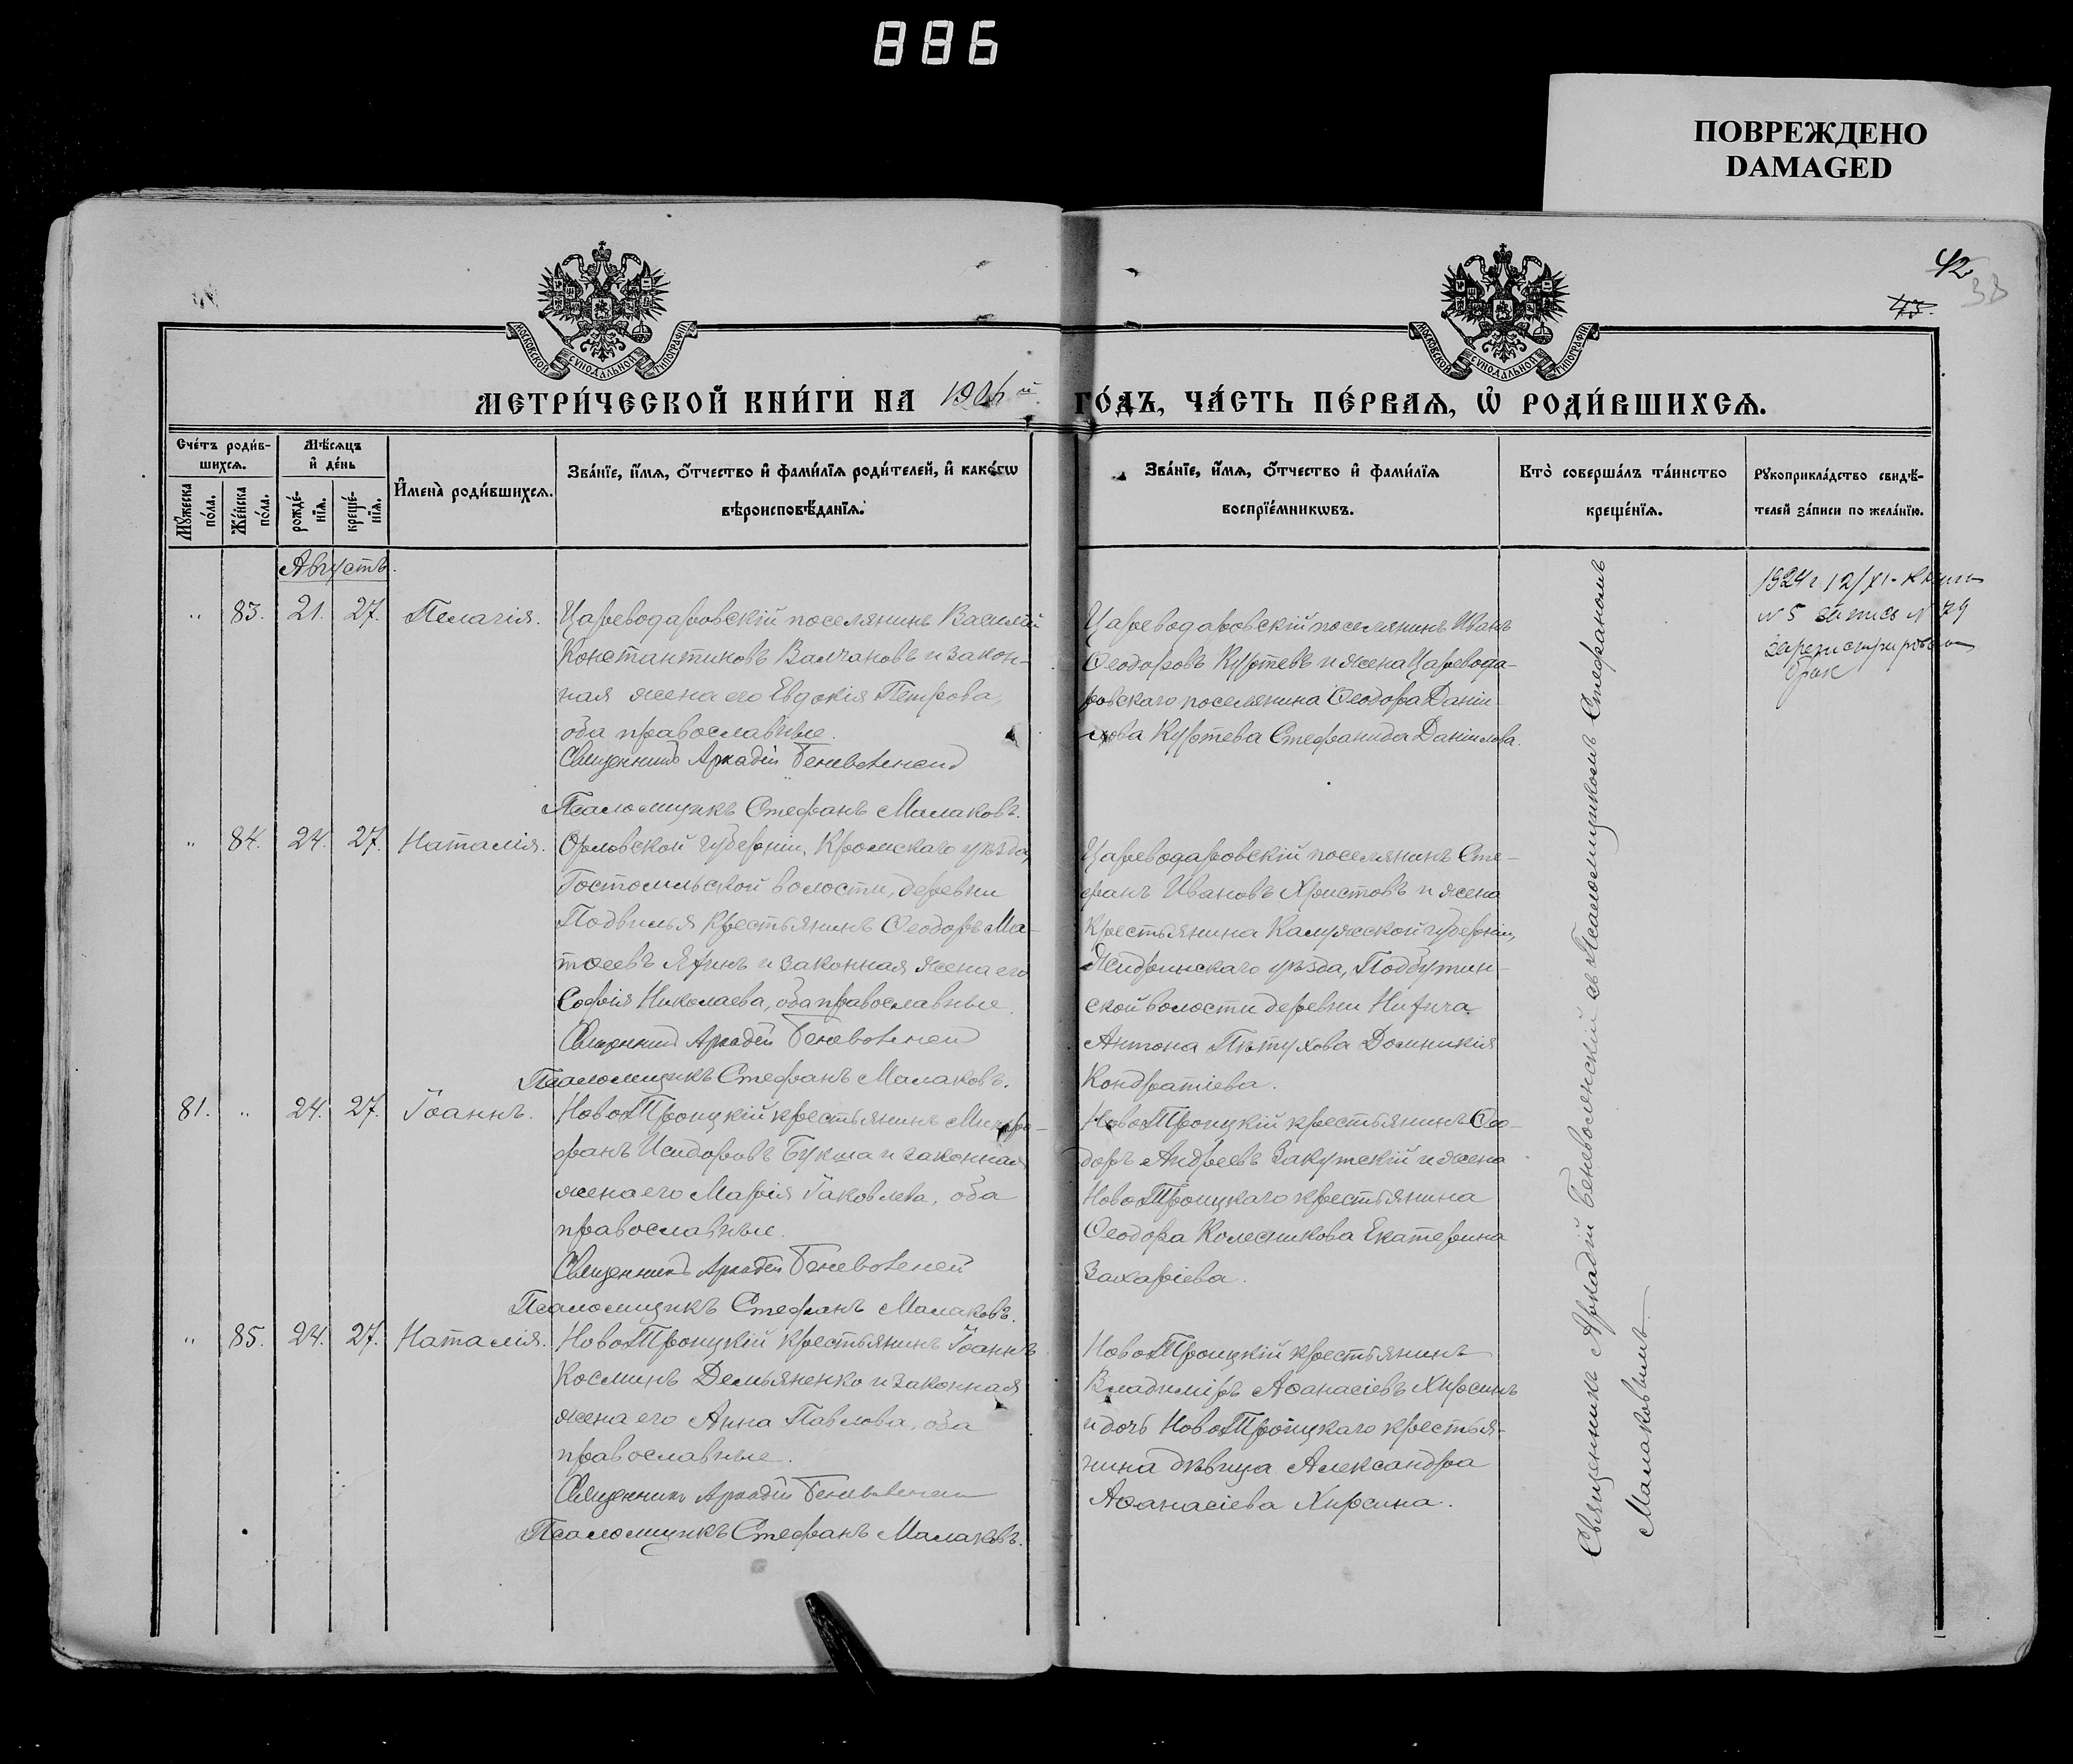 886
ПОВРЕЖДЕНО
DAMAGED
42
38
43.
МОСКОВСКОЙ СѴНОДАЛЬНОЙ ТИПОГРАФІИ
МОСКОВСКОЙ СѴНОДАЛЬНОЙ ТИПОГРАФІИ
МЕТРИ́ЧЕСКОЙ КНИ́ГИ НА 1906й ГО́ДЪ, ЧА́СТЬ ПЕ́РВАѦ, Ѡ҆ РОДИ́ВШИХСѦ.
Счетъ роди́вшихсѧ.
Мꙋжеска по́ла.
Же́нска по́ла.
Мѣ́сѧцъ и҆ де́нь
рожде́нїѧ.
креще́нїѧ.
И҆мена̀ роди́вшихсѧ.
Зва́нїе, и҆́мѧ, ѻ҆́тчество и҆ фами́лїѧ роди́телей, и҆ како́гѡ
вѣроисповѣ́данїѧ.
Зва́нїе, и҆́мѧ, ѻ҆́тчество и҆ фами́лїѧ
воспрїе́мникѡвъ.
Кто̀ соверша́лъ та́инство
креще́нїѧ.
Рꙋкоприкла́дство свидѣ́-
телей за́писи по жела́нїю.
Августъ.
" 83. 21. 27. Пелагія.
Царевода­ровскій поселянинъ Василій
Константиновъ Валчановъ и закон-
ная жена его Евдокія Петрова,
оба православные.
Священникъ Аркадій Беневоленскій
Псаломщикъ Стефанъ Малаковъ.
Царевода­ровскій поселянинъ Иванъ
Ѳеодоровъ Куртевъ и жена Царевода-
ровскаго поселянина Ѳеодора Дании-
лова Куртева Стефанида Даніилова.
1924 г. 12/XI - книги
N 5 запись N 79
зарегистрирован
брак
" 84. 24. 27. Наталія.
Орловской губерніи, Кромскаго уѣзда,
Гостомльской волости, деревни
Подвилья крестьянинъ Ѳеодоръ Ма-
тѳеевъ и законная жена его
Софія Николаева, оба православные.
Священникъ Аркадій Беневоленскій
Псаломщикъ Стефанъ Малаковъ.
Царевода­ровскій поселянинъ Сте-
фанъ Ивановъ Христовъ и жена
крестьянина Калужской губерніи,
Жиздринскаго уѣзда, Подбужин-
ской волости деревни
Антона Пѣтухова Домникія
Кондратіева.
81. " 24. 27. Іоаннъ.
НовоТроицкій крестьянинъ Митро-
фанъ Исидоровъ Букша и законная
жена его Марія Іаковлева, оба
православные.
Священникъ Аркадій Беневоленскій
Псаломщикъ Стефанъ Малаковъ.
НовоТроицкій крестьянинъ Ѳео-
доръ Андреевъ Закутскій и жена
НовоТроицкаго крестьянина
Ѳеодора Колесникова Екатерина
Захаріева.
" 85. 24. 27. Наталія.
НовоТроицкій крестьянинъ Іоаннъ
Косминъ Демьяненко и законная
жена его Анна Павлова, оба
православные.
Священникъ Аркадій Беневоленскій
Псаломщикъ Стефанъ Малаковъ.
НовоТроицкій крестьянинъ
Владиміръ Аѳанасіевъ Хирсинъ
и дочь НовоТроицкаго крестья-
нина дѣвица Александра
Аѳанасіева Хирсина.
Священникъ Аркадій Беневоленскій съ Псаломщикомъ Стефаномъ
Малаковымъ.